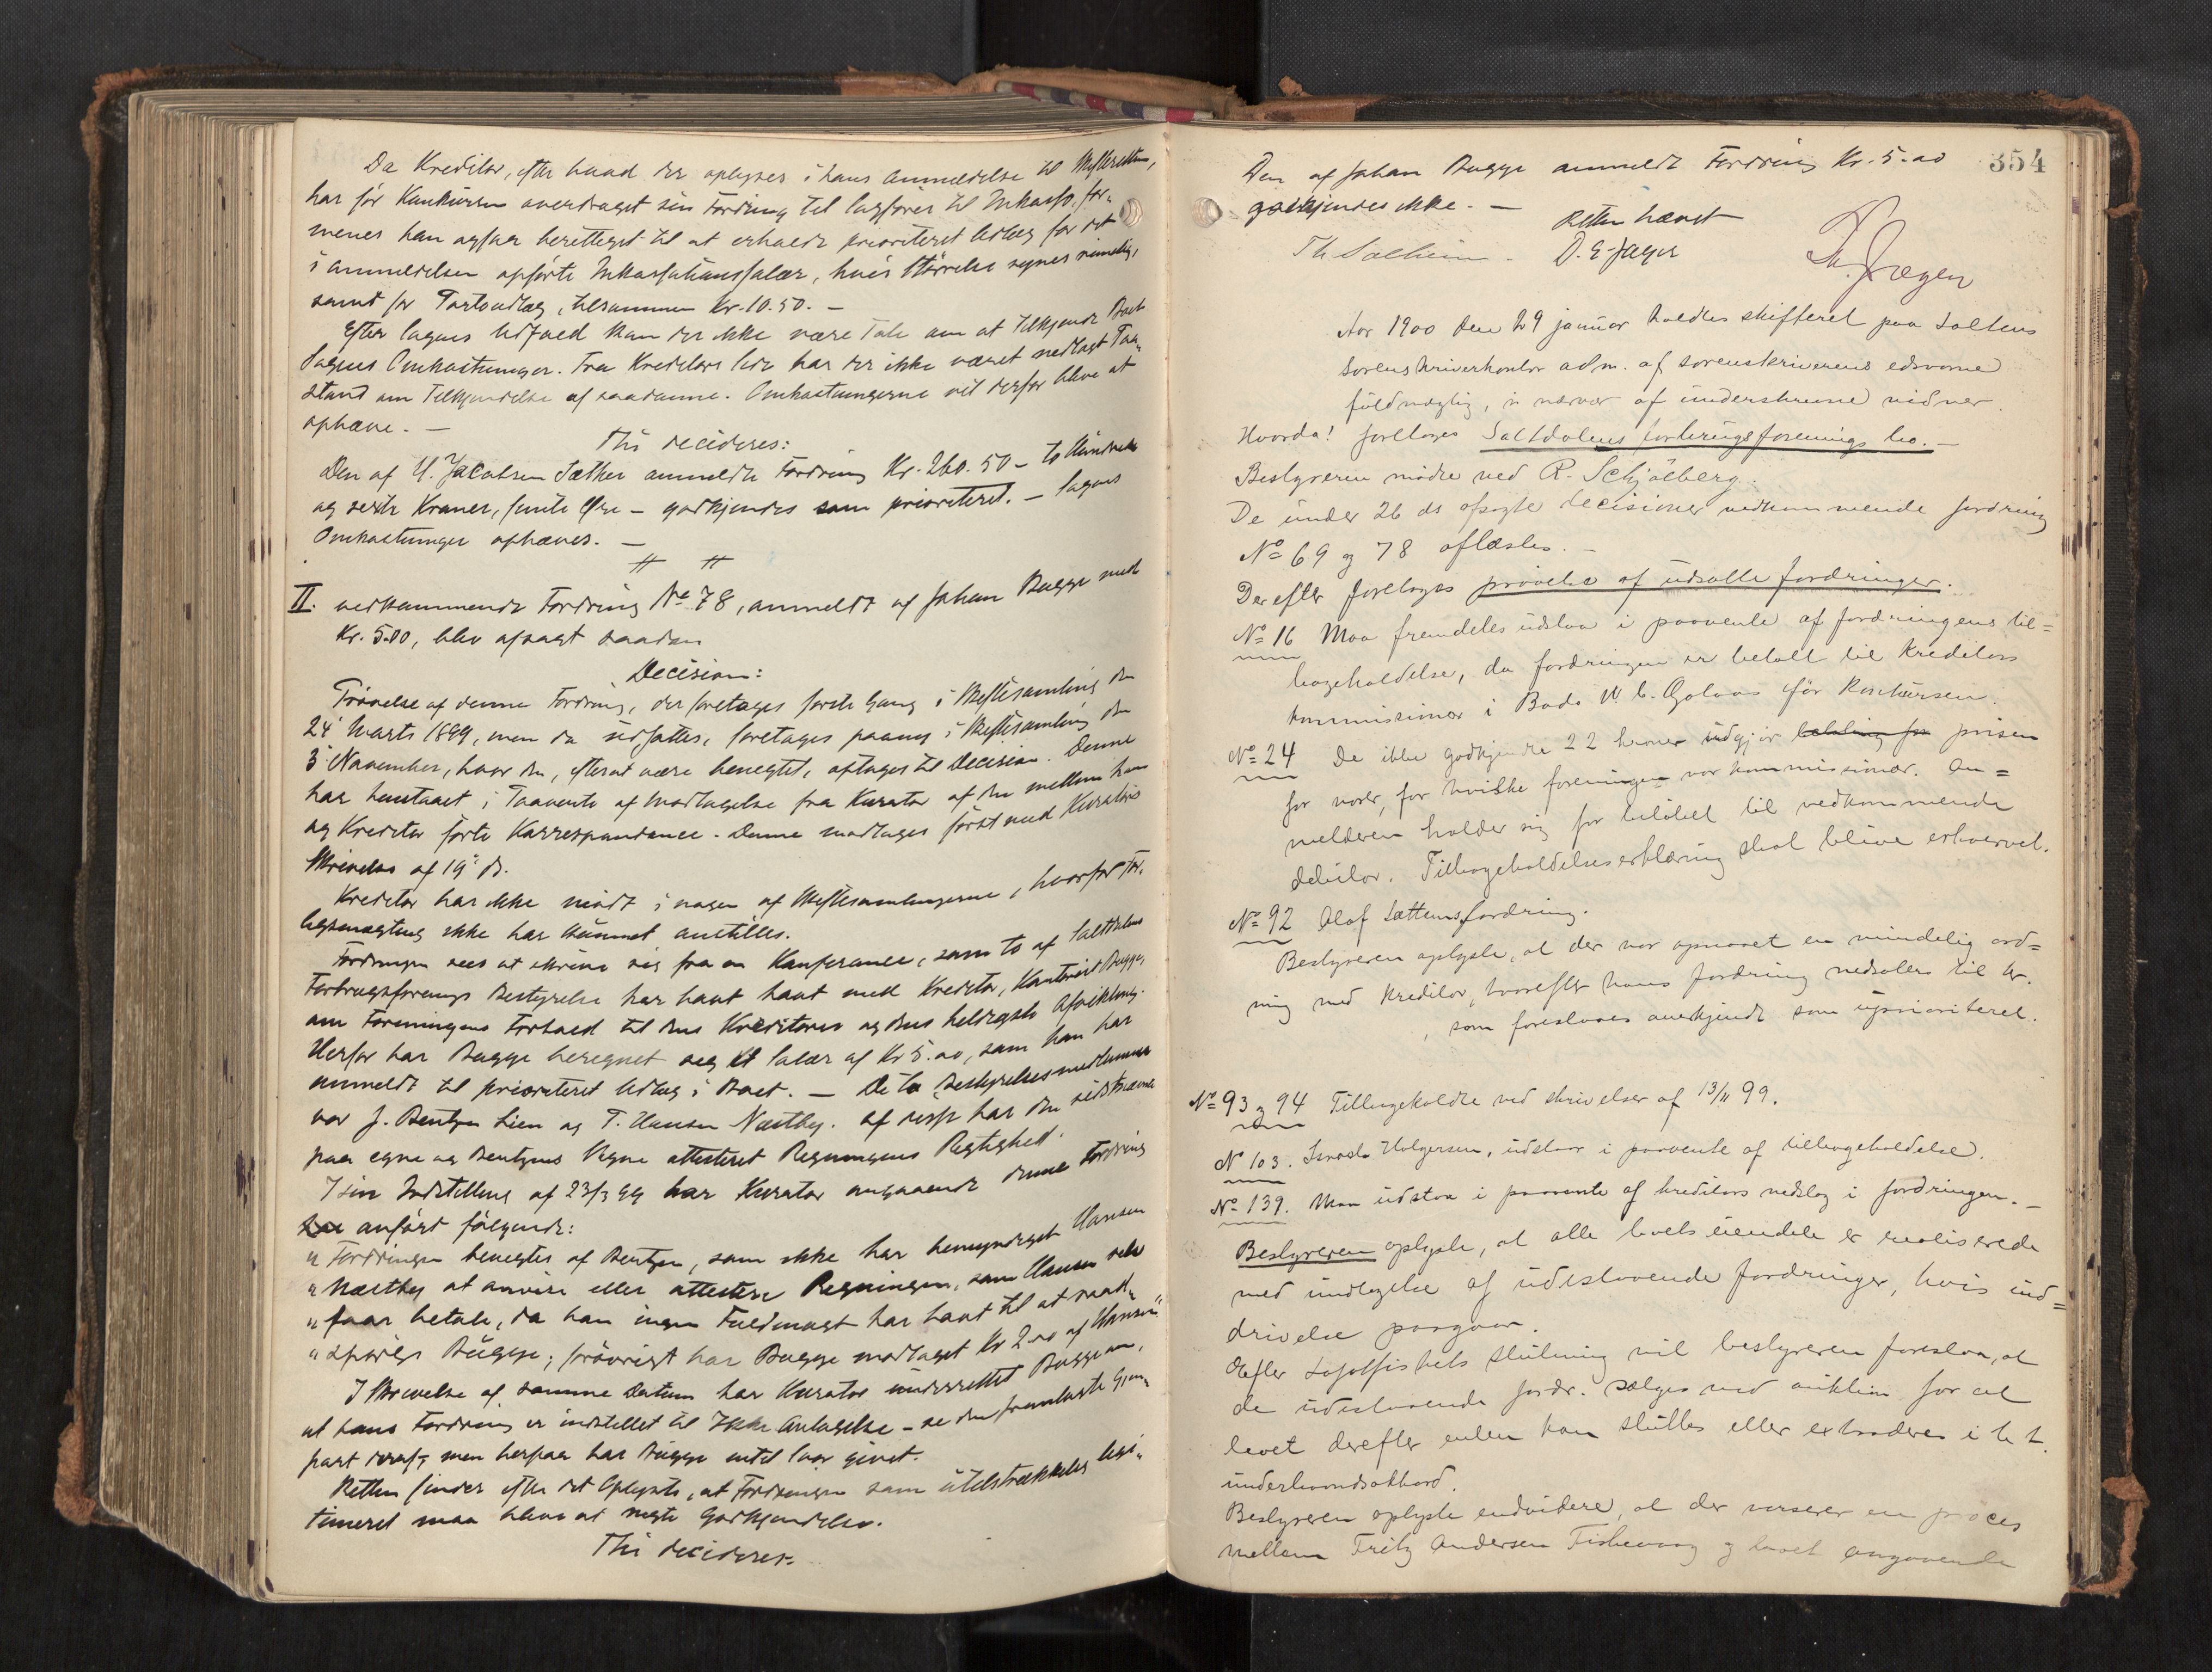 Da Kreditor, efter hvad der oplyses i hans Anmeldelse til Skifteretten,
har før Konkursen overdraget sin Fordring til Sagfører til Inkasso, for-
menes han ogsaa berettiget til at erholde prioriteret Udlæg for det
i Anmeldelsen opførte Inkassationssalær, hvis Størrelse synes rimelig,
samt for Portoudlæg, tilsammen Kr. 10.50. —
Efter Sagens Udfald kan der ikke være Tale om at tilkjende Boet
Sagens Omkostninger. Fra Kreditors Side har der ikke været nedlagt Paa-
stand om Tilkjendelse af saadanne. Omkostningerne vil derfor blive at
ophæve. —
Thi decideres:
Den af U. Jacobsen Sæther anmeldte Fordring Kr. 260.50 – to Hundrede
og sexti Kroner, femti Øre – godkjendes som prioriteret. – Sagens
Omkostninger ophæves. —
II. vedkommende Fordring No 78, anmeldt af Johan Bugge med
Kr. 5.00, blev afsagt saadan
Decision:
Prøvelse af denne Fordring, der foretages første Gang i Skiftesamling den
24' Marts 1899, men da udsattes, foretages paany i Skiftesamling den
3' November, hvor den, efterat være benegtet, optages til Decision. Denne
har henstaaet i Paavente af Modtagelse fra Kurator af den mellem ham
og Kreditor førte Korrespondance. Denne modtages først med Kurators
Skrivelse af 19' ds.
Kreditor har ikke mødt i nogen af Skiftesamlingerne, hvorfor For-
ligsmægling ikke har kunnet anstilles.
Fordringen sees at skrive sig fra en Konferance, som to af Saltdalens
Forbrugsforenings Bestyrelse har havt havt med Kreditor, Kontorist Bugge,
om Foreningens Forhold til dens Kreditorer og dens heldigste Afvikling.
Herfor har Bugge beregnet sig et Salær af Kr 5.00, som han har
anmeldt til prioriteret Udlæg i Boet. — De to Bestyrelsesmedlemmer
var J. Bentzen Lien og T. Hansen Næstby. Af disse har den sidstnævnte
paa egne og Bentzens Vegne attesteret Regningens Rigtighed.
I sin Indstilling af 23/3 99 har Kurator angaaende denne Fordring
anført følgende:
" Fordringen benegtes af Bentzen, som ikke har bemyndiget Hansen
" Næstby at anvise eller attestere Regningen, som Hansen selv
" faar betale, da han ingen Fuldmagt har havt til at raad-
" spørge Bugge; forøvrigt har Bugge modtaget Kr 2.00 af Hansen"
I Skrivelse af samme Datum har Kurator underrettet Bugge om,
at hans Fordring er indstillet til Ikke Antagelse – se den fremlagte Gjen-
part deraf, men herpaa har Bugge intet Svar givet.
Retten finder efter det Oplyste, at Fordringen som utilstrækkelig legi-
timeret maa blive at negte Godkjendelse.
Thi decideres:
354
Den af Johan Bugge anmeldt Fordring Kr. 5.00
godkjendes ikke. —
Retten hævet
Th Solheim. D. E. Jæger
Aar 1900 den 29 januar holdtes skifteret paa Saltens
sorenskriverkontor adm. af sorenskriverens edsvorne
fuldmægtig, i nærvær af underskrevne vidner.
Hvorda! foretoges Saltdalens forbrugsforenings bo. —
Bestyreren mødte ved R. Schjölberg.
De under 26 ds afsagte decisioner vedkommende fordring
No 69 og 78 oflæstes. —
Derefter foretoges prøvelse af udsatte fordringer.
No 16 Maa fremdeles udstaa i paavente af fordringens til=
bageholdelse, da fordringen er betalt til kreditors
kommissionær i Bodø før konkursen.
No 24 De ikke godkjendte 22 kroner udgjør betaling for prisen
for varer, for hvilke foreningen var kommissionær. An=
melderen holder sig for beløbet til vedkommende
debitor. Tilbageholdelseserklæring skal blive erhvervet.
No 92 Olaf Sættems fordring.
Bestyreren oplyste, at der var opnaaet en mindelig ord=
ning med kreditor, hvorefter hans fordring nedsættes til kr.
, som foreslaaes anerkjendt som uprioriteret.
No 93 og 94 Tilbageholdte ved skrivelser af 13/11 99.
No 103. Holgersen, udstaar i paavente af tilbageholdelse.
No 139. Maa udstaa i paavente af kreditors nedslag i fordringen. —
Bestyreren oplyste, at alle boets eiendele er realiserede
med undtagelse af udestaaende fordringer, hvis ind=
drivelse paagaar.
Efter Lofotfiskets slutning vil bestyreren foreslaa, at
de udestaaende fordr. sælges ved auktion for at
boet derefter enten kan sluttes eller extraderes i h. t.
underhaandsakkord.
Bestyreren oplyste endvidere, at der verserer en proces
mellem Fritz Andersen Fiskevaag og boet angaaende